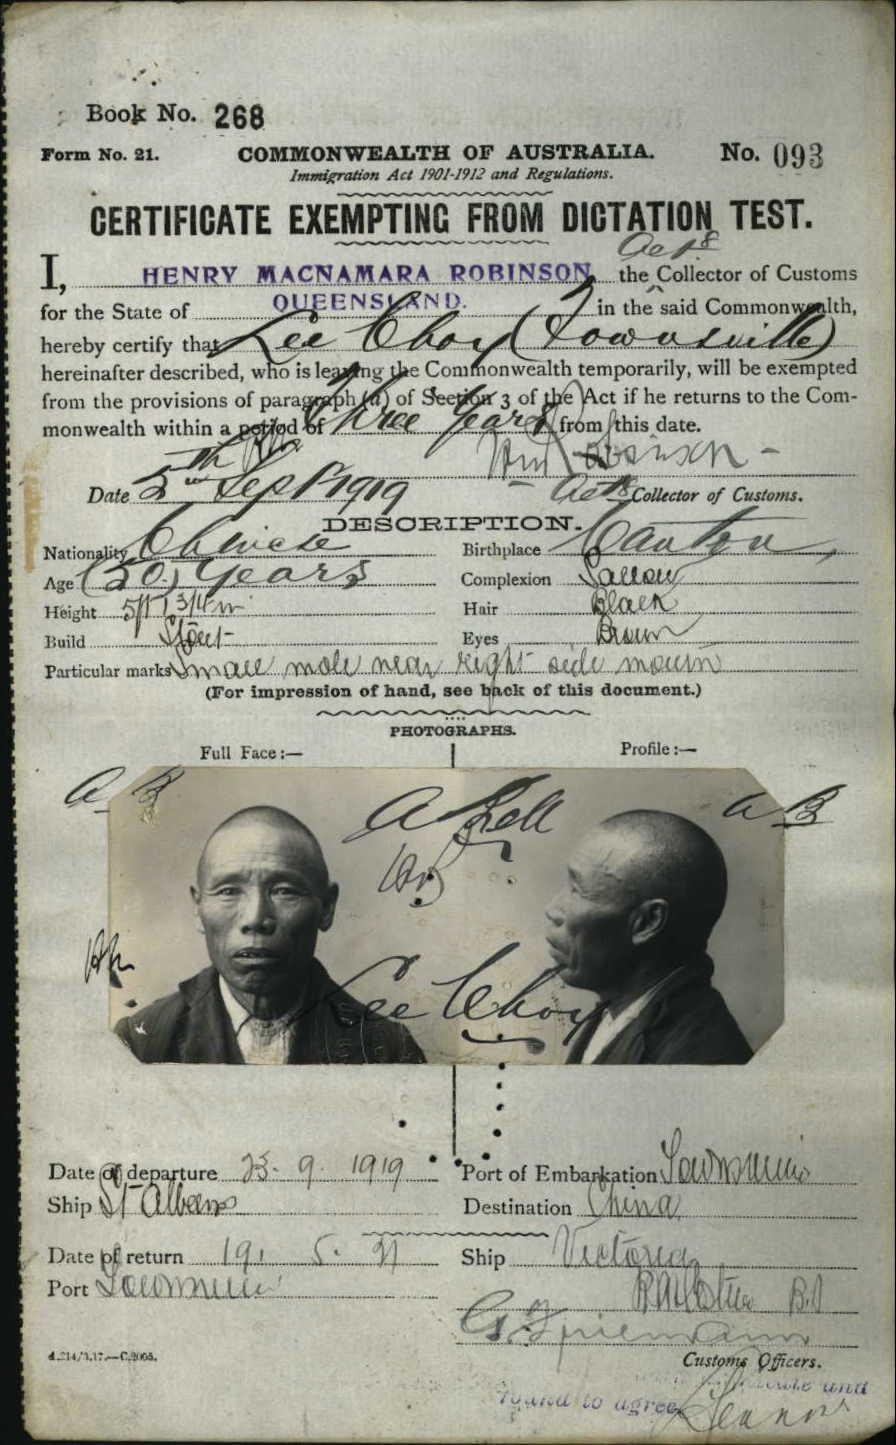 Book No. 268
Form No. 21. COMMONWEALTH OF AUSTRALIA. No. 093
Immigration Act 1901-1912 and Regulations.
CERTIFICATE EXEMPTING FROM DICTATION TEST.
Actg
I, HENRY MACNAMARA ROBINSON the Collector of Customs
for the State of QUEENSLAND. in the said Commonwealth,
hereby certify that Lee Choy (Townsville)
hereinafter described, who is leaving the Commonwealth temporarily, will be exempted
from the provisions of paragraph (a) of Section 3 of the Act if he returns to the Com-
monwealth within a period of Three Years from this date.
HM Robinson
Date Sept 1919 Actg Collector of Customs.
DESCRIPTION.
Nationality Chinese Birthplace Canton
Age (50) Years Complexion Sallow
Height 5ft 1 3/4 in Hair Black
Build Stout Eyes Brown
Particular marks Small mole near right side mouth
(For impression of hand, see back of this document.)
PHOTOGRAPHS.
Full Face:— Profile:—
A B A Bell A B
Lee Choy
Date of departure 23. 9. 1919 Port of Embarkation Townsville
Ship St Albans Destination China
Date of return 19. 5. 21 Ship Victoria
Port Townsville
Customs Officers.
and
found to agree